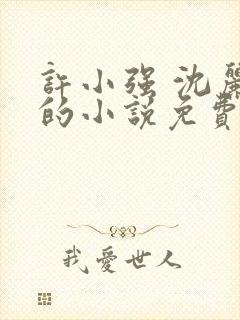 許小强 沈麗
的小說免費
我愛世人